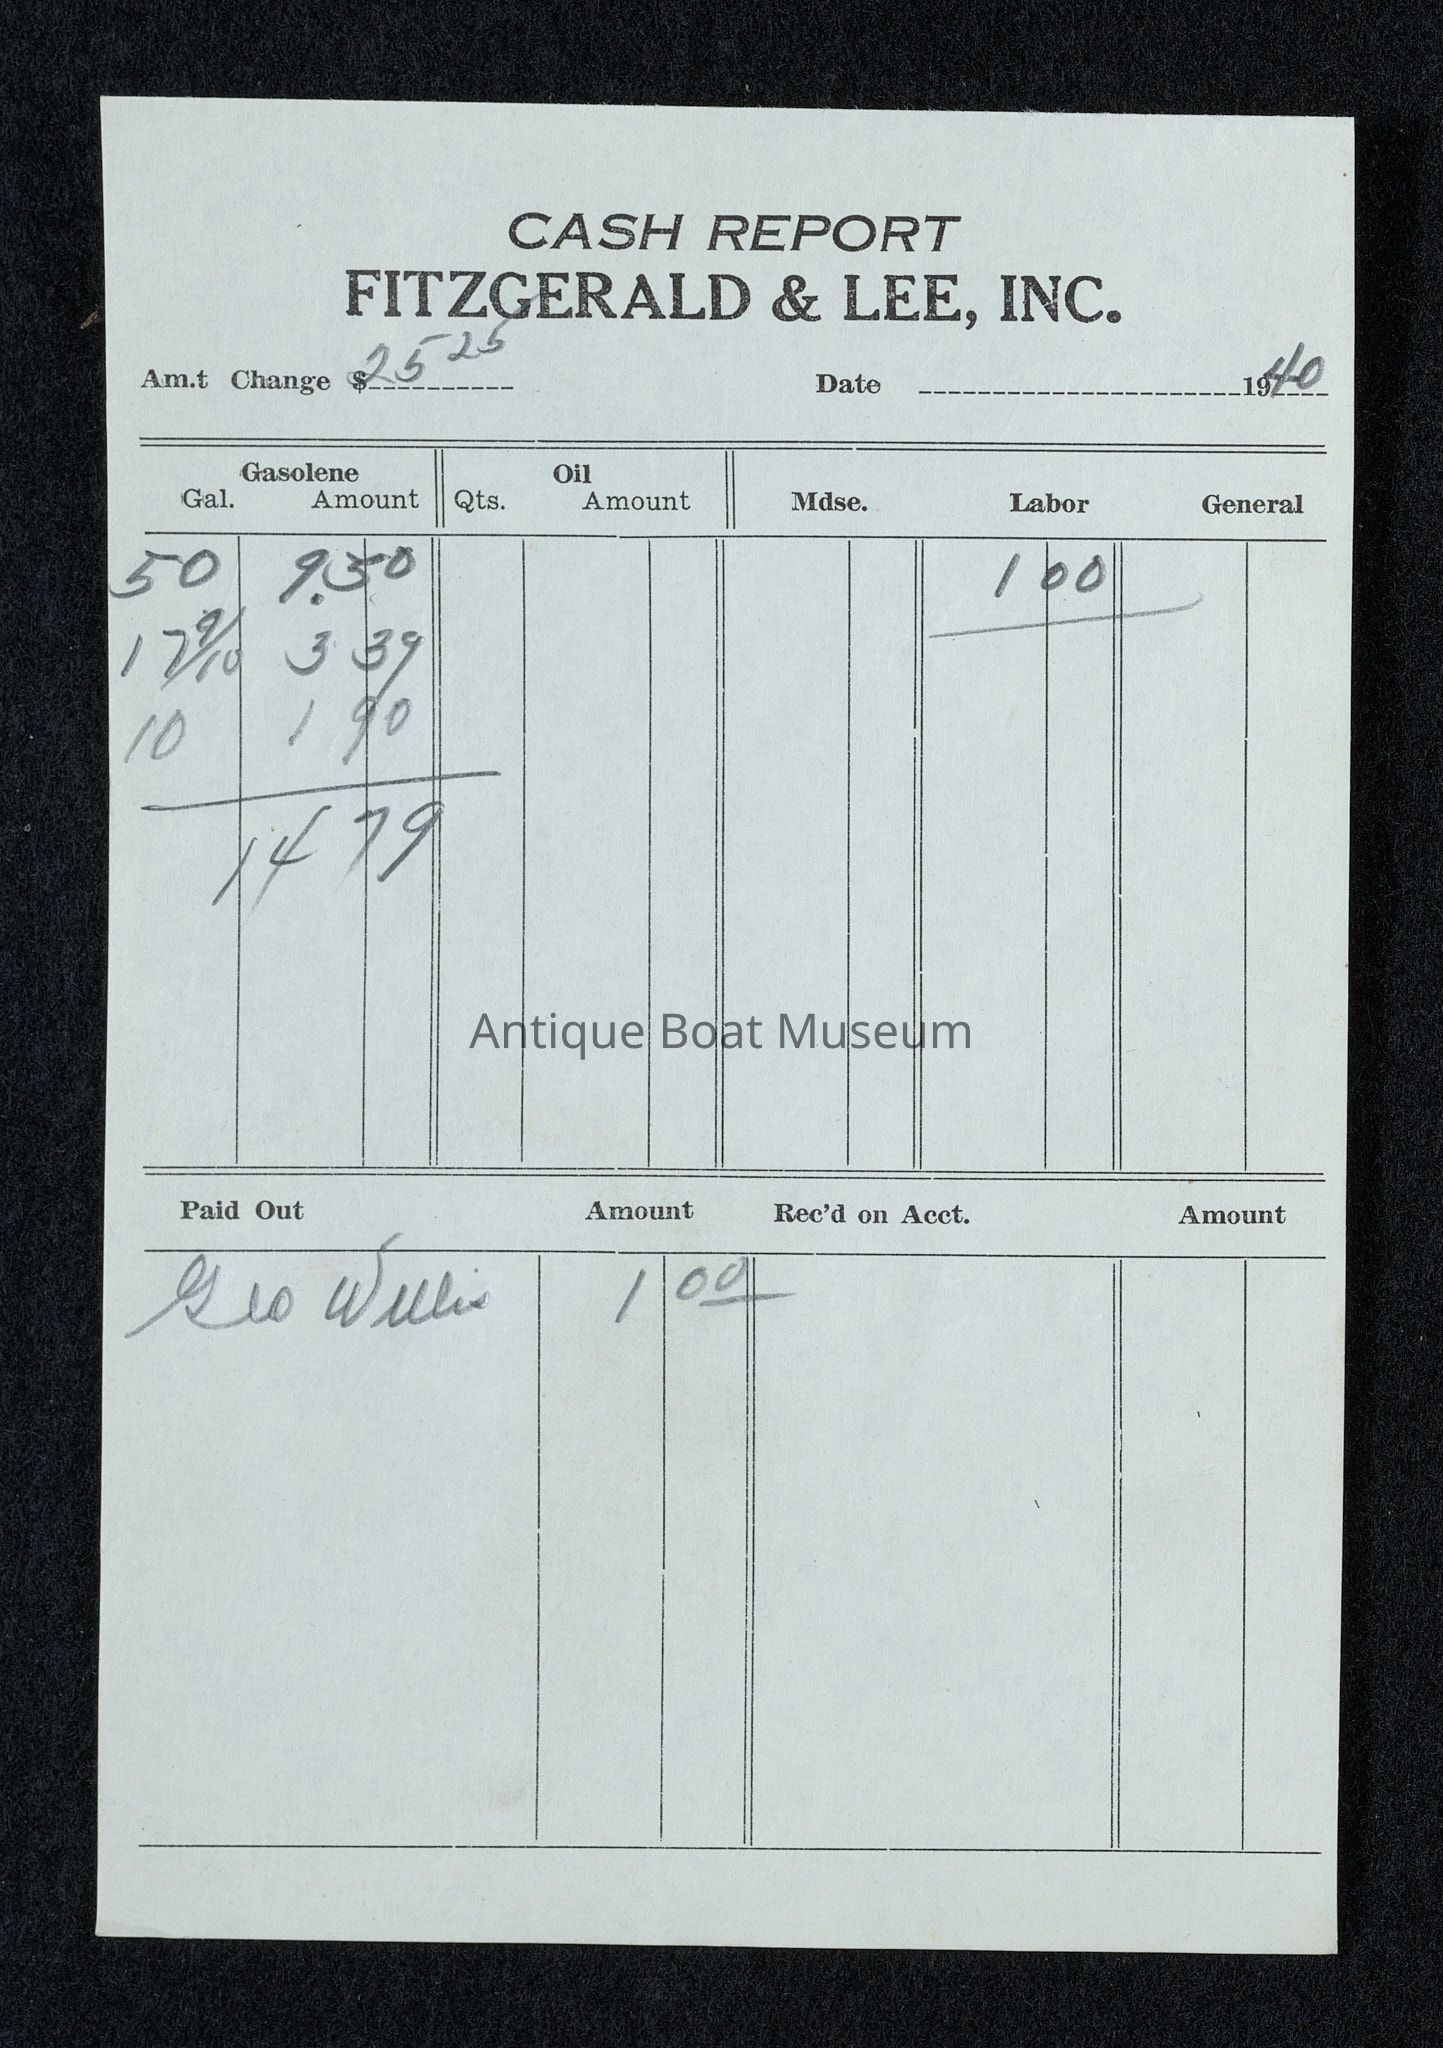 CASH REPORT
FITZGERALD & LEE, INC.
Am.t Change $ 25 25 Date 1940
Gasolene Oil
Gal. Amount Qts. Amount Mdse. Labor General
50 9.50 1 00
17 9/10 3 39
10 1 90
14 79
Antique Boat Museum
Paid Out Amount Rec'd on Acct. Amount
Geo Willis 1 00